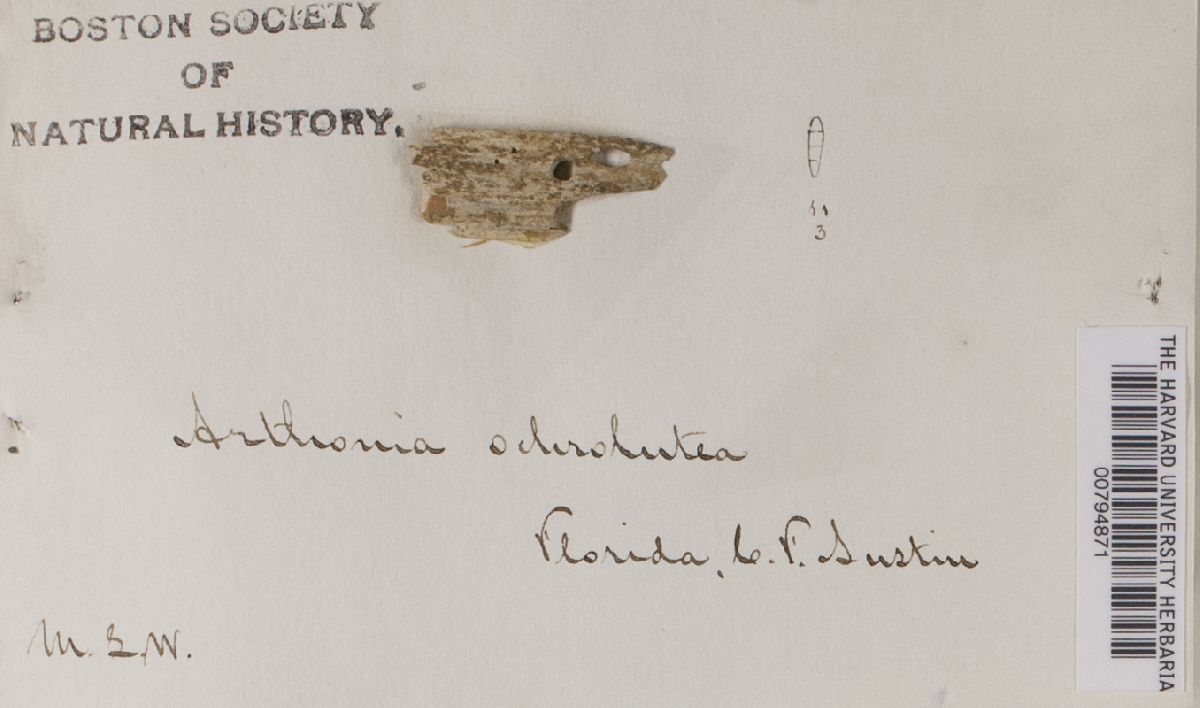 BOSTON SOCIETY
OF
NATURAL HISTORY.
3
Arthonia ochrolutea
Florida, C. F. Austin
M. L. W.
THE HARVARD UNIVERSITY HERBARIA
00794871